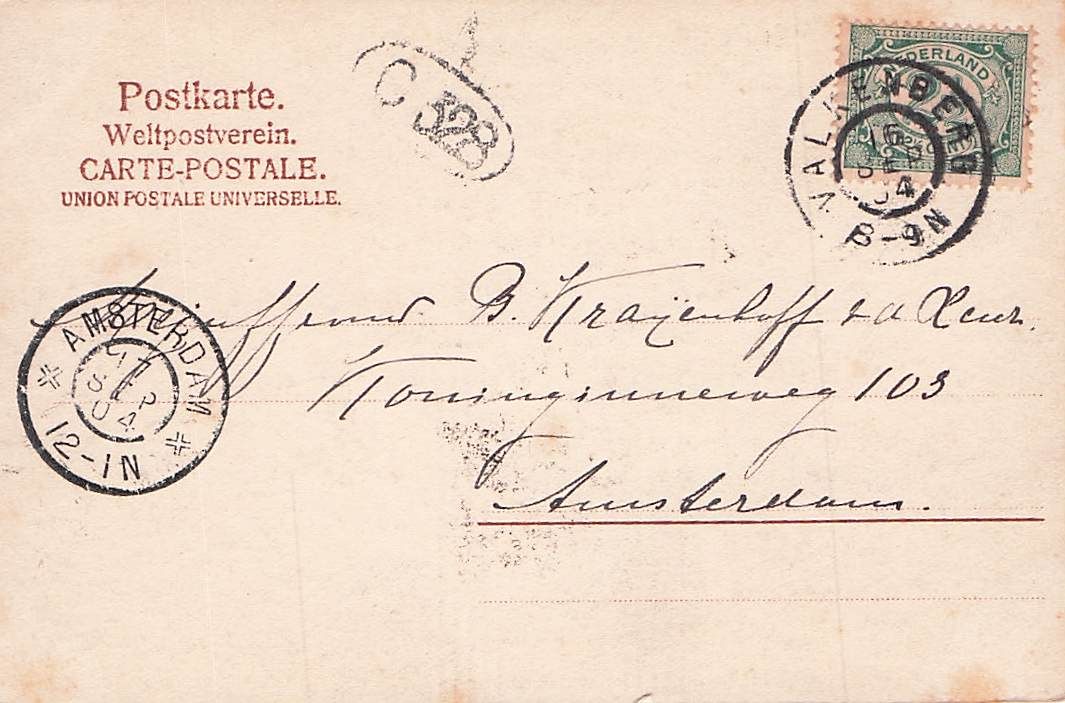 Postkarte.
Weltpostverein.
CARTE-POSTALE.
UNION POSTALE UNIVERSELLE.
C 328
NEDERLAND
VALKENBERG
16 SEP 04
8-9N
AMSTERDAM
17 SEP 04
12-1N
B. Kraijenhoff v d Leur.
Koninginneweg 103
Amsterdam.